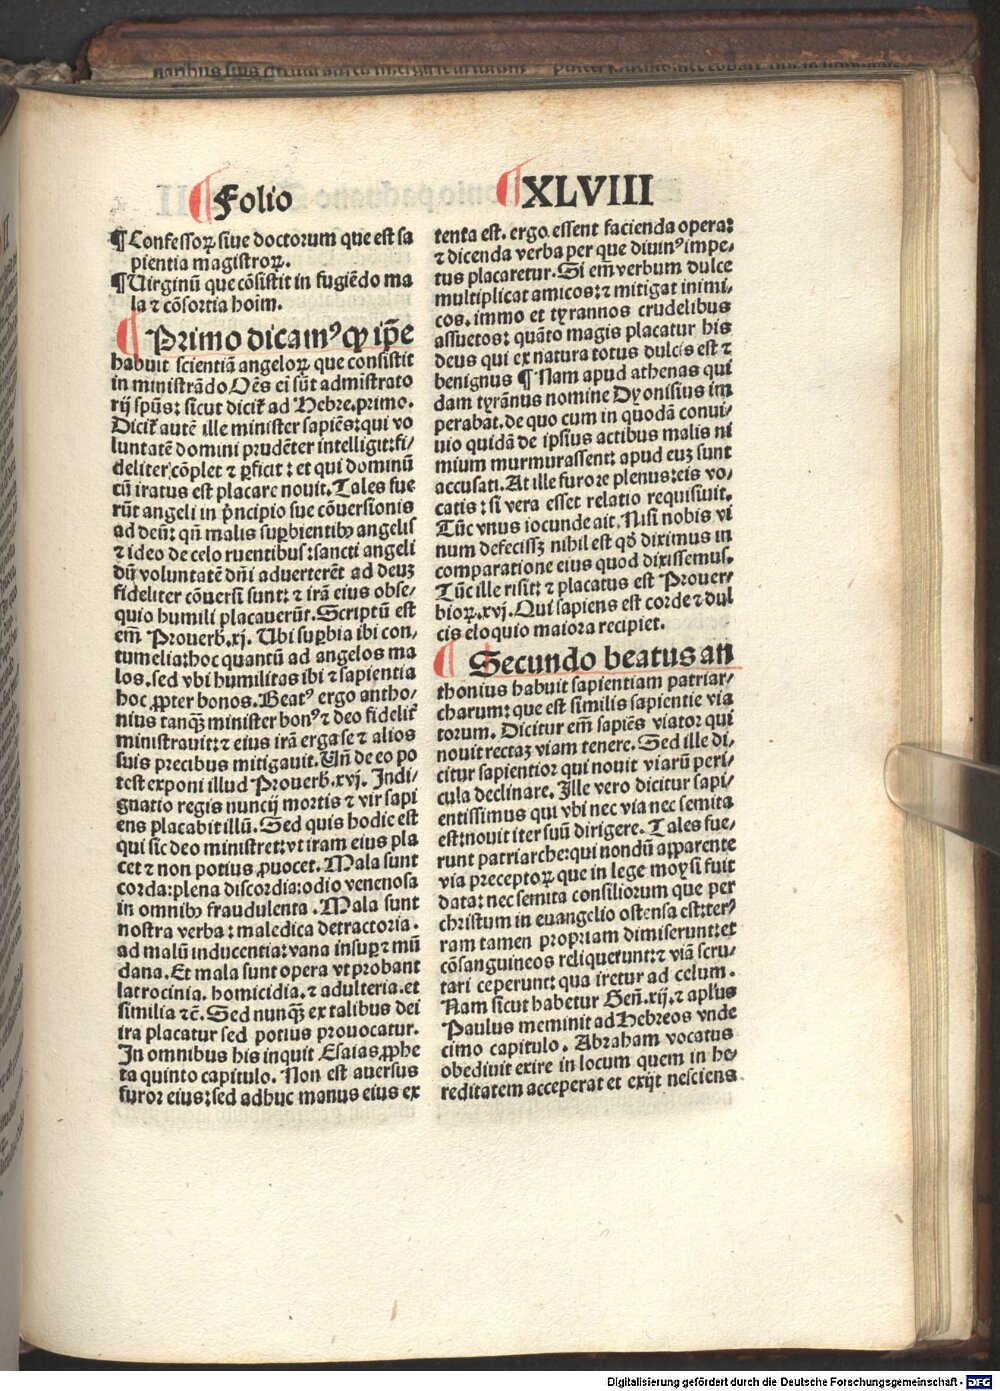 Folio
XLVIII
¶ Confessoꝝ siue doctorum que est sa
pientia magistroꝝ.
¶ Uirginū que cōsistit in fugiēdo ma
la ⁊ cōsortia hoim.
Primo dicamꝰ ꝙ ip̄e
habuit scientiā angeloꝝ que consistit
in ministrādo Oēs ei sūt admīstrato
rij spūs: sicut dicit̄ ad Hebre.primo.
Dicit̄ autē ille minister sapiēs: qui vo
luntatē domini prudēter intelligit: fi/
deliter cōplet ⁊ ꝑficit: et qui dominū
cū iratus est placare nouit. Tales fue
rūt angeli in pͥncipio sue cōuersionis
ad deū: qn̄ malis suꝑbientibꝫ angelis
⁊ ideo de celo ruentibus: sancti angeli
dū voluntatē dn̄i aduerterēt ad deuꝫ
fideliter cōuersi sunt: ⁊ irā eius obse/
quio humili placauerūt. Scriptū est
em̄ Prouerb.xj. Ubi suꝑbia ibi con/
tumelia: hoc quantū ad angelos ma
los. sed vbi humilitas ibi ⁊ sapientia
hoc ꝓpter bonos. Beatꝰ ergo antho/
nius tanqꝫ minister bonꝰ ⁊ deo fidelit̄
ministrauit: ⁊ eius irā erga se ⁊ alios
suis precibus mitigauit. Un̄ de eo po
test exponi illud Prouerb.xvj. Indi/
gnatio regis nuncij mortis ⁊ vir sapi
ens placabit illū. Sed quis hodie est
qui sic deo ministret: vt iram eius pla
cet ⁊ non potius ꝓuocet. Mala sunt
corda: plena discordia: odio venenosa
in omnibꝫ fraudulenta. Mala sunt
nostra verba: maledica detractoria.
ad malū inducentia: vana insuꝑ ⁊ mū
dana. Et mala sunt opera vt probant
latrocinia. homicidia. ⁊ adulteria. et
similia ⁊c̄. Sed nunqꝫ ex talibus dei
ira placatur sed potius prouocatur.
In omnibus his inquit Esaias ꝓphe
ta quinto capitulo. Non est auersus
furor eius: sed adhuc manus eius ex
tenta est. ergo essent facienda opera:
⁊ dicenda verba per que diuinꝰ impe/
tus placaretur. Si em̄ verbum dulce
multiplicat amicos: ⁊ mitigat inimi/
cos. immo et tyrannos crudelibus
assuetos: quāto magis placatur his
deus qui ex natura totus dulcis est ⁊
benignus ¶ Nam apud athenas qui
dam tyrānus nomine Dyonisius im
perabat. de quo cum in quodā conui/
uio quidā de ipsius actibus malis ni
mium murmurassent: apud euꝫ sunt
accusati. At ille furore plenus: eis vo/
catis: si vera esset relatio requisiuit.
Tūc vnus iocunde ait. Nisi nobis vi
num defecissꝫ nihil est qd̄ diximus in
comparatione eius quod dixissemus.
Tūc ille risit: ⁊ placatus est Prouer/
bioꝝ.xvj. Qui sapiens est corde ⁊ dul
cis eloquio maiora recipiet.
Secundo beatus an
thonius habuit sapientiam patriar/
charum: que est similis sapientie via
torum. Dicitur em̄ sapiēs viator qui
nouit rectaꝫ viam tenere. Sed ille di/
citur sapientior qui nouit viarū peri/
cula declinare. Ille vero dicitur sapi/
entissimus qui vbi nec via nec semita
est: nouit iter suū dirigere. Tales fue/
runt patriarche: qui nondū apparente
via preceptoꝝ que in lege moysi fuit
data: nec semita consiliorum que per
christum in euangelio ostensa est: ter/
ram tamen propriam dimiserunt: et
cōsanguineos reliquerunt: ⁊ viā scru/
tari ceperunt: qua iretur ad celum.
Nam sicut habetur Gen̄.xij. ⁊ apl̄us
Paulus meminit ad Hebreos vnde
cimo capitulo. Abraham vocatus
obediuit exire in locum quem in he/
reditatem acceperat et exijt nesciens
Digitalisierung gefördert durch die Deutsche Forschungsgemeinschaft - DFG